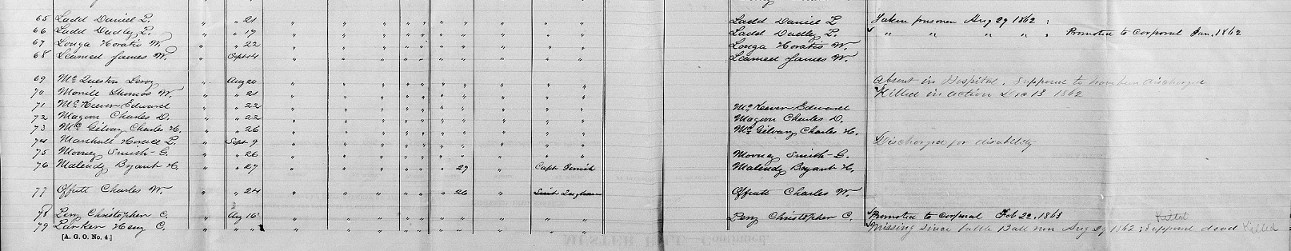 65 Ladd Daniel L. " " 21 " " " " " " " " Ladd Daniel L Taken prisoner Aug 29 1862
66 Ladd Dudley L. " " 19 " " " " " " " " Ladd Dudley L. " " " " " Promoted to Corporal Jan. 1862
67 Longa Horatio W. " " 22 " " " " " " " " Longa Horatio W.
68 Learned James W. " Sept 4 " " " " " " " " Learned James W.
69 Mc Questin Leroy " Aug 20 " " " " " " " " Absent in Hospital. Suppose to have been discharged
70 Morrill Thomas W. " " 21 " " " " " " " " Killed in action Dec 13 1862
71 Mc Keever Edward " " 22 " " " " " " " " Mc Keever Edward
72 Magoon Charles D. " " 22 " " " " " " " " Magoon Charles D.
73 Mc Gilvary Charles H. " " 26 " " " " " " " " Mc Gilvary Charles H.
74 Marshall Horace L. " Sept 9 " " " " " " " " Discharged for disability
75 Smith G. " " 26 " " " " " " " " Smith G.
76 Bryant H. " " 27 " " " " " 27 " Capt Bryant H.
77 Offutt Charles W. " " 24 " " " " " 26 " Offutt Charles W.
78 Christopher C. " Aug 16 " " " " " " " " Christopher C. Promoted to Corporal Feb 22. 1863
79 C. " " " " " " " " " " Missing since battle Bull run Aug 29 1862; Supposed dead Killed
[A. G. O. No. 4.]